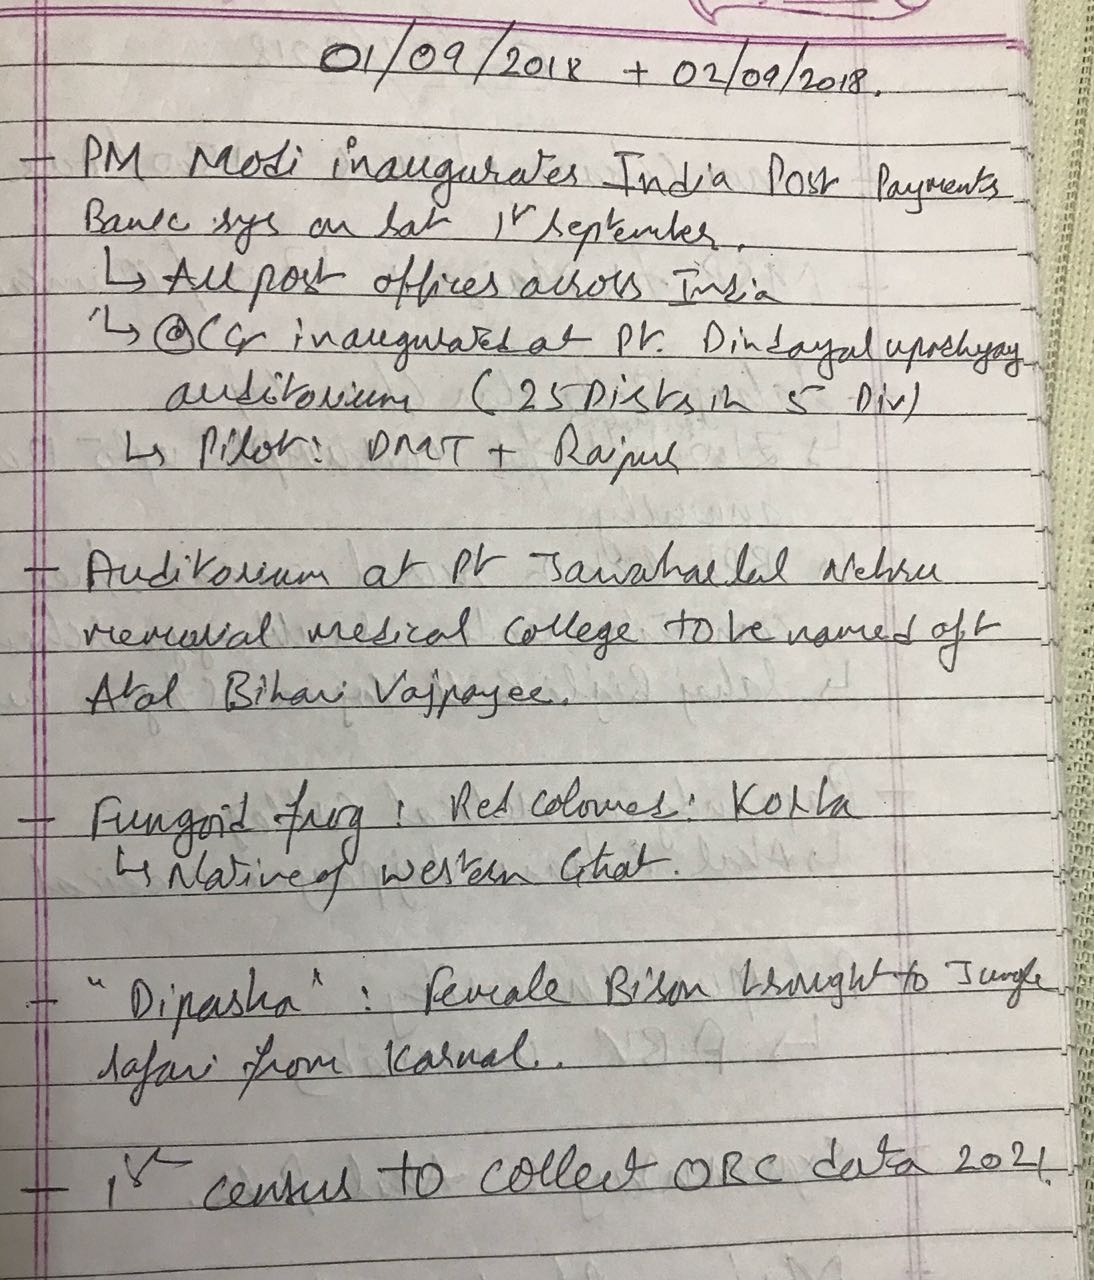 01/09/2018 + 02/09/2018.
- PM Modi inaugurates India Post Payments
Bank sys on Sat 1st September.
↳ All post offices across India
↳ @ CG inaugurated at Pt. Dindayal upadhyay
auditorium (25 Dists in 5 Div)
↳ Pilot: DMT + Raipur
- Auditorium at Pt Jawaharlal Nehru
memorial medical College to be named aft
Atal Bihari Vajpayee.
- Fungoid frog : Red coloured:
↳ Native of western Ghat.
- "Dipasha" : female Bison brought to Jungle
safari from Karnal.
- 1st census to collect OBC data 2021.